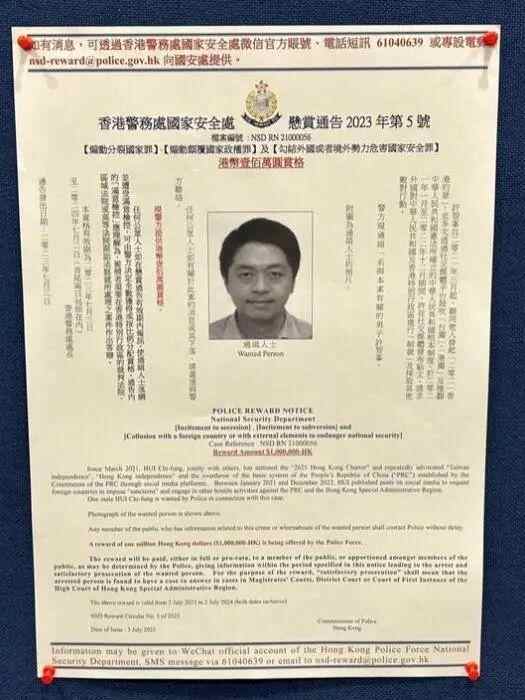 如有消息，可透過香港警務處國家安全處微信官方賬號、電話短訊 61040639 或專設電郵
nsd-reward@police.gov.hk 向國安處提供。
香港警務處國家安全處 懸賞通告 2023 年第 5 號
檔案編號：NSD RN 21000056
【煽動分裂國家罪】、【煽動顛覆國家政權罪】及【勾結外國或者境外勢力危害國家安全罪】
港幣壹佰萬圓賞格
許智峯自二〇二一年三月起，聯同他人發起「二〇二一香
港約章」，並多次透過社交媒體平台鼓吹「台獨」、「港獨」及推翻
中華人民共和國憲法所確立的中華人民共和國根本制度。於二〇二
一年一月至二〇二二年十二月期間，許在社交媒體發布帖文，請求
外國對中華人民共和國及香港特別行政區進行「制裁」及採取其他
敵對行動。
警方現通緝一名與本案有關的男子許智峯。
附圖為通緝人士的照片。
任何公眾人士如有關於此案的消息或其下落，請盡速與警
方聯絡。
現警方提供港幣壹佰萬圓賞格。
通緝人士
Wanted Person
本賞格有效期為二〇二三年七月三日
至二〇二四年七月二日（首尾兩日包括在內）
香港警務處處長
通告發出日期：二〇二三年七月三日
POLICE REWARD NOTICE
National Security Department
[Incitement to secession] , [Incitement to subversion] and
[Collusion with a foreign country or with external elements to endanger national security]
Case Reference : NSD RN 21000056
Reward Amount $1,000,000-HK
Since March 2021, HUI Chi-fung, jointly with others, has initiated the "2021 Hong Kong Charter" and repeatedly advocated "Taiwan
independence", "Hong Kong independence" and the overthrow of the basic system of the People's Republic of China ("PRC") established by the
Constitution of the PRC through social media platforms. Between January 2021 and December 2022, HUI published posts on social media to request
foreign countries to impose "sanctions" and engage in other hostile activities against the PRC and the Hong Kong Special Administrative Region.
One male HUI Chi-fung is wanted by Police in connection with this case.
Photograph of the wanted person is shown above.
Any member of the public, who has information related to this crime or whereabouts of the wanted person shall contact Police without delay.
A reward of one million Hong Kong dollars ($1,000,000-HK) is being offered by the Police Force.
The reward will be paid, either in full or pro-rata, to a member of the public, or apportioned amongst members of the
public, as may be determined by the Police, giving information within the period specified in this notice leading to the arrest and
satisfactory prosecution of the wanted person. For the purpose of the reward, "satisfactory prosecution" shall mean that the
arrested person is found to have a case to answer in cases in Magistrates' Courts, District Court or Court of First Instance of the
High Court of Hong Kong Special Administrative Region.
The above reward is valid from 3 July 2023 to 2 July 2024 (both dates inclusive)
NSD Reward Circular No. 5 of 2023
Commissioner of Police
Date of Issue : 3 July 2023
Hong Kong
Information may be given to WeChat official account of the Hong Kong Police Force National
Security Department, SMS message via 61040639 or email to nsd-reward@police.gov.hk